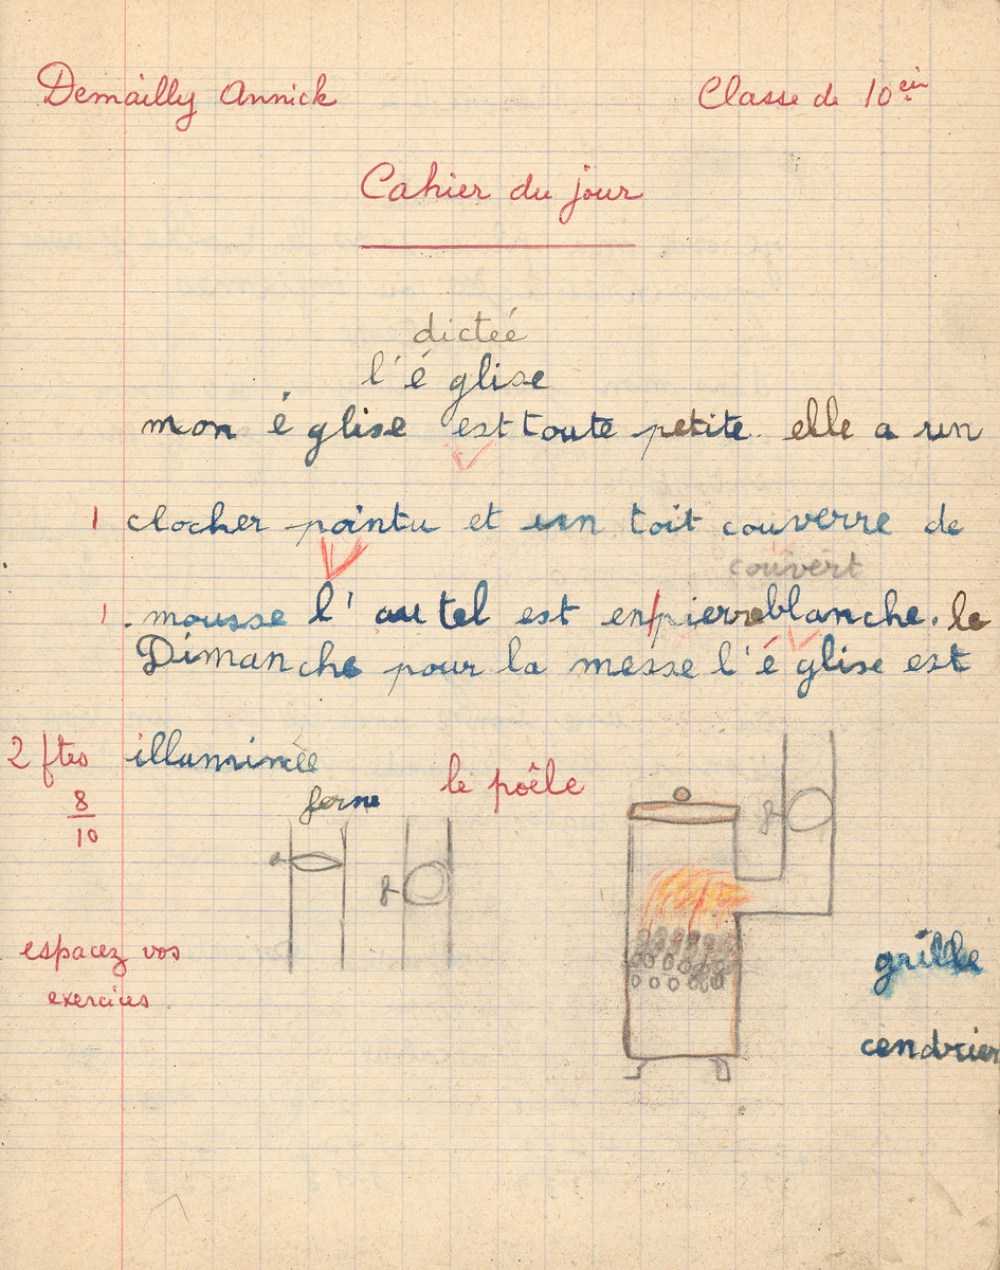 Demailly Annick Classe de 10ein
Cahier du jour
dicteé
l'é glise
mon é glise est toute petite. elle a un
1 clocher pointu et un toit couverre de
couvert
1. mousse l'autel est en/pierre blanche. le
Dimanche pour la messe l'é glise est
2 ftes illuminée
8
10
ferme
le poêle
espacez vos
exercices.
grille
cendrier